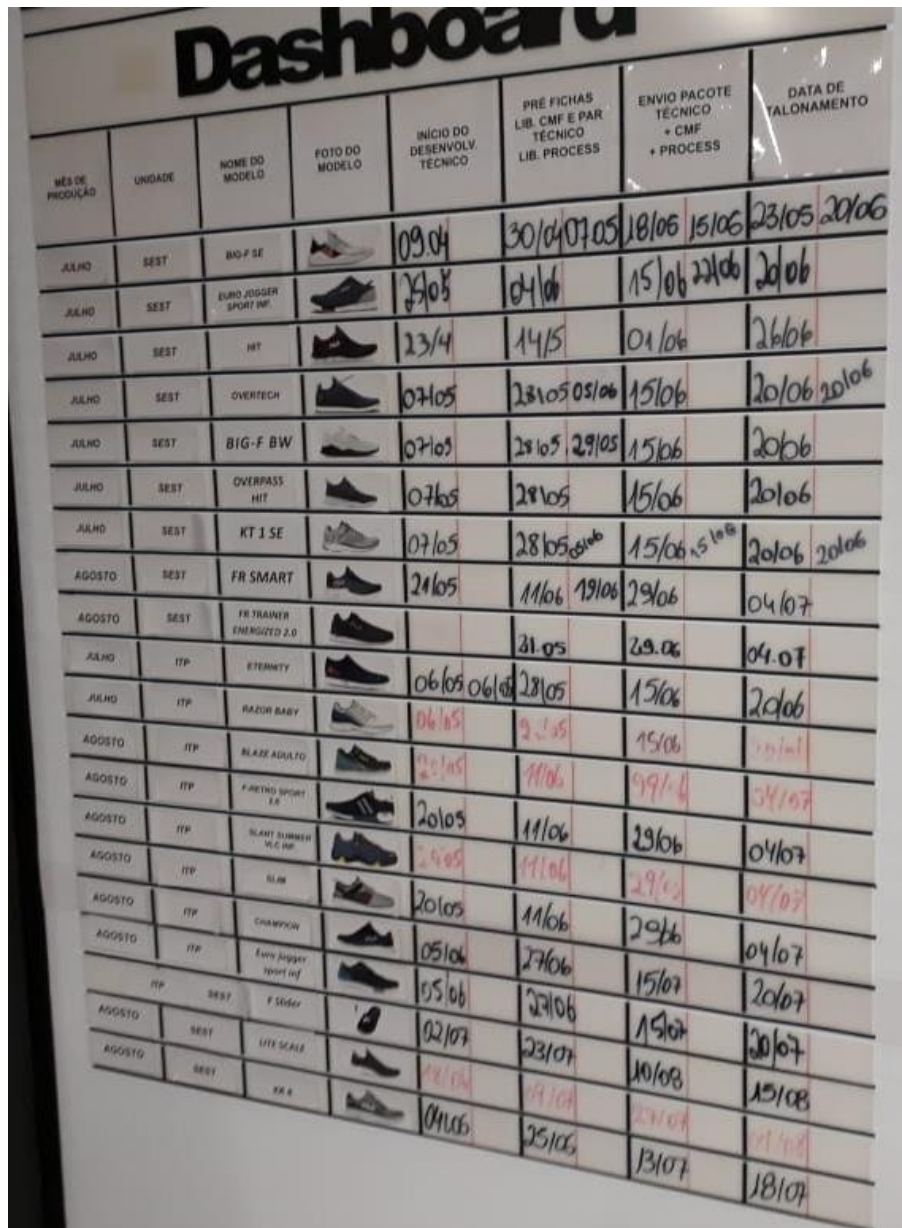 Dashboard
MÊS DE PRODUÇÃO UNIDADE NOME DO MODELO FOTO DO MODELO INÍCIO DO DESENVOLV. TÉCNICO PRÉ FICHAS LIB. CMF E PAR TÉCNICO LIB. PROCESS ENVIO PACOTE TÉCNICO + CMF + PROCESS DATA DE TALONAMENTO
JULHO SEST BIG-F SE 09.04 30/04 07.05 18/06 15/06 23/05 20/06
JULHO SEST EURO JOGGER SPORT INF. 04/06 15/06 22/06 20/06
JULHO SEST HIT 23/4 14/5 01/06 26/06
JULHO SEST OVERTECH 07/05 28/05 05/06 15/06 20/06 20/06
JULHO SEST BIG-F BW 07/05 28/05 29/05 15/06 20/06
JULHO SEST OVERPASS HIT 07/05 28/05 15/06 20/06
JULHO SEST KT 1 SE 07/05 28/05 05/06 15/06 15/06 20/06 20/06
AGOSTO SEST FR SMART 21/05 11/06 19/06 29/06 04/07
AGOSTO SEST FR TRAINER ENERGIZED 2.0 31.05 29.06 04.07
JULHO ITP ETERNITY 06/05 28/05 15/06 20/06
JULHO ITP RAZOR BABY 06/05 15/06
AGOSTO ITP BLAZE ADULTO 11/06 04/07
AGOSTO ITP F-RETRO SPORT 20/05 11/06 29/06 04/07
AGOSTO ITP SLANT SUMMER VLC INF. 11/06 04/07
AGOSTO ITP SLIM 20/05 11/06 04/07
AGOSTO ITP CHAMPION 05/06 27/06 15/07 20/07
AGOSTO ITP Euro jogger sport inf 05/06 27/06 15/07 20/07
ITP SEST F Slider 02/07 23/07 10/08 15/08
AGOSTO SEST LITE SCALE 09/07 27/07
AGOSTO SEST 04/06 25/06 13/07 18/07